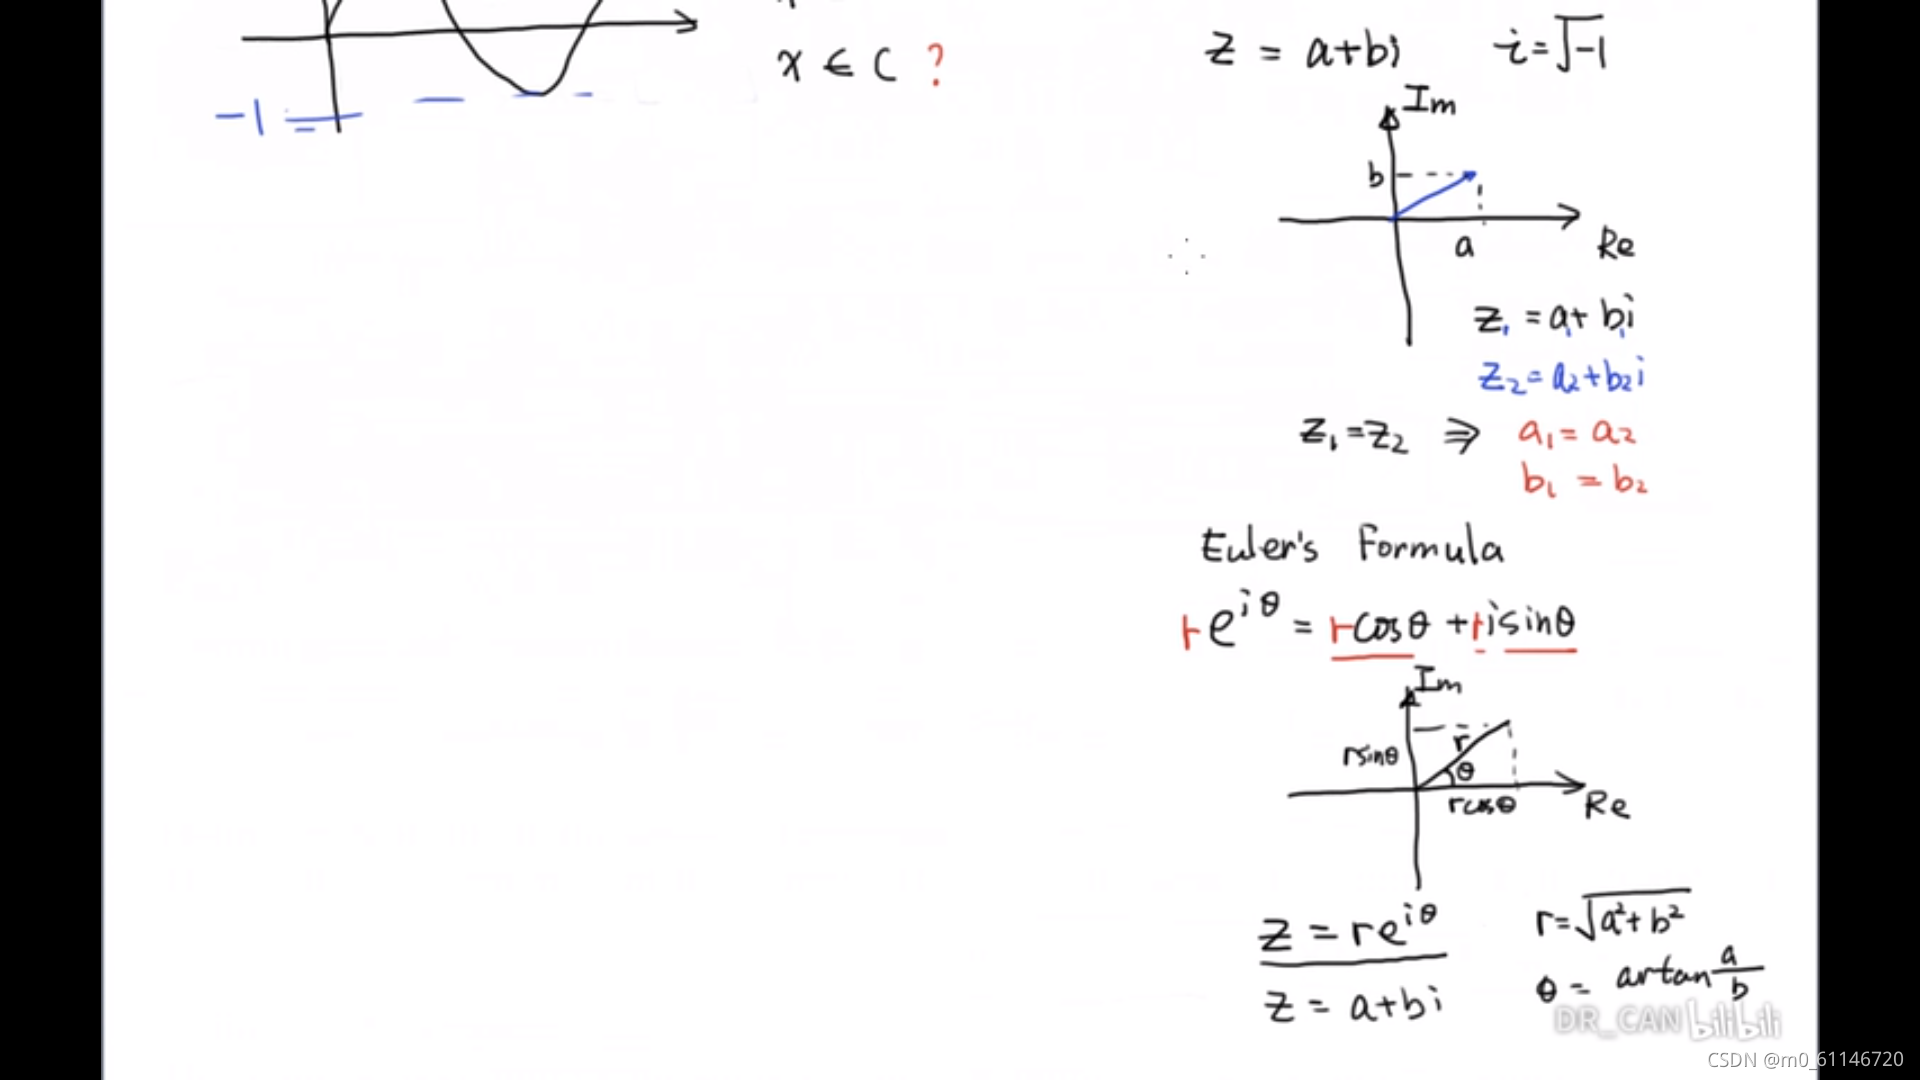 x ∈ C ?
-1
z = a+bi i=√-1
Im
b
a
Re
z₁ = a₁+ b₁i
z₂=a₂+b₂i
z₁=z₂ ⇒ a₁= a₂
b₁ = b₂
Euler's Formula
re^{iθ} = rcosθ +risinθ
Im
rsinθ
r
θ
rcosθ
Re
z = re^{iθ} r=√a²+b²
z = a+bi θ = artan a/b
DR_CAN bilibili
CSDN @m0_61146720